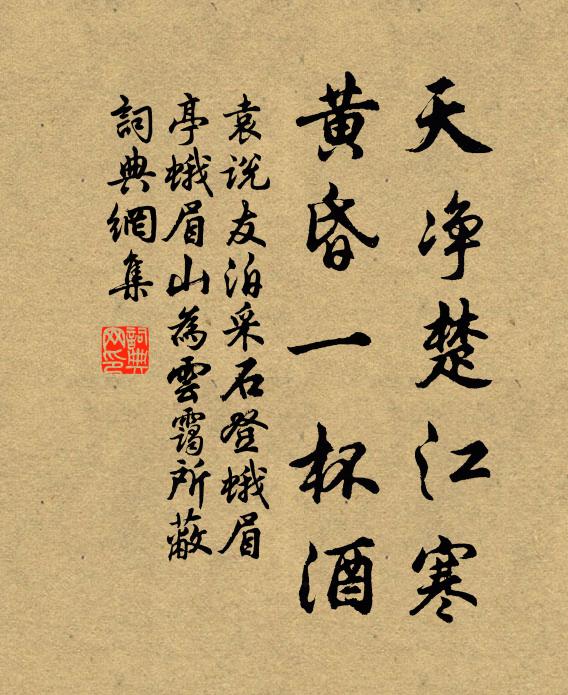 天净楚江寒
黄昏一杯酒
袁说友泊采石登蛾眉
亭蛾眉山為雲霭所蔽
詞典網集
詞典
网印